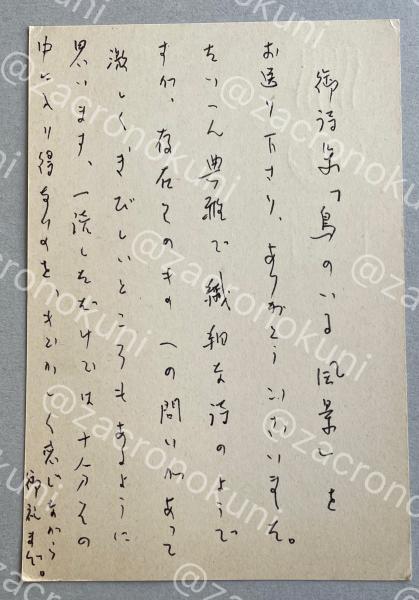 御詩集「鳥のいる風景」を
お送り下さり、ありがとうございました。
たいへん典雅で繊細な詩のようで
すが、存在そのもの への問いがあって
激しく、きびしいところもあるように
思います、一読しただけでは十分その
中に入り得ないのを、もどかしく感じながら
御礼まで。
@zacronokuni